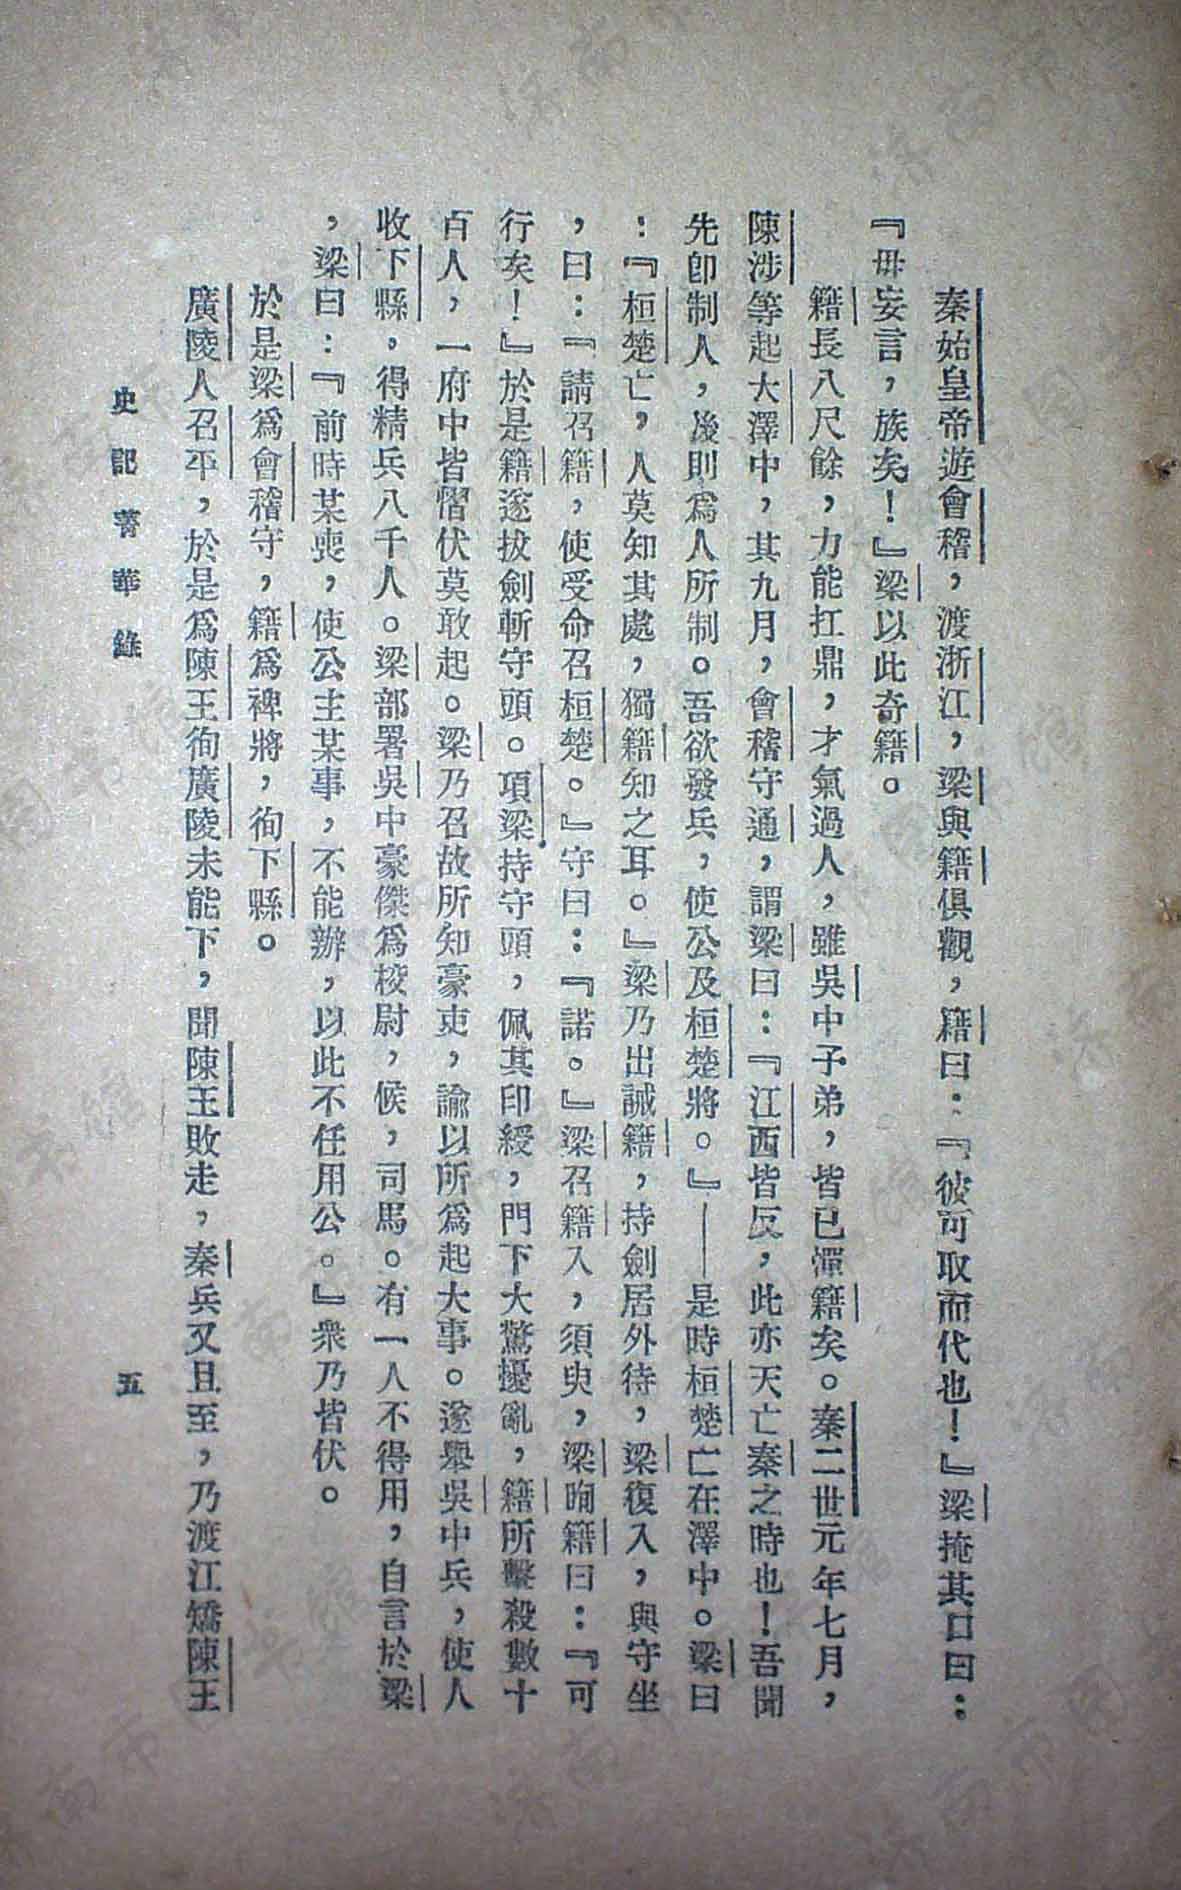 秦始皇帝遊會稽，渡浙江，梁與籍俱觀，籍曰：『彼可取而代也！』梁掩其口曰：
『毋妄言，族矣！』梁以此奇籍。
籍長八尺餘，力能扛鼎，才氣過人，雖吳中子弟，皆已憚籍矣。秦二世元年七月，
陳涉等起大澤中，其九月，會稽守通，謂梁曰：『江西皆反，此亦天亡秦之時也！吾聞
先卽制人，後則爲人所制。吾欲發兵，使公及桓楚將。』——是時桓楚亡在澤中。梁曰
：『桓楚亡，人莫知其處，獨籍知之耳。』梁乃出誡籍，持劍居外待，梁復入，與守坐
，曰：『請召籍，使受命召桓楚。』守曰：『諾。』梁召籍入，須臾，梁眴籍曰：『可
行矣！』於是籍遂拔劍斬守頭。項梁持守頭，佩其印綬，門下大驚擾亂，籍所擊殺數十
百人，一府中皆慴伏莫敢起。梁乃召故所知豪吏，諭以所爲起大事。遂舉吳中兵，使人
收下縣，得精兵八千人。梁部署吳中豪傑爲校尉，候，司馬。有一人不得用，自言於梁
，梁曰：『前時某喪，使公主某事，不能辦，以此不任用公。』衆乃皆伏。
於是梁爲會稽守，籍爲裨將，徇下縣。
廣陵人召平，於是爲陳王徇廣陵未能下，聞陳王敗走，秦兵又且至，乃渡江矯陳王
史記菁華錄
五